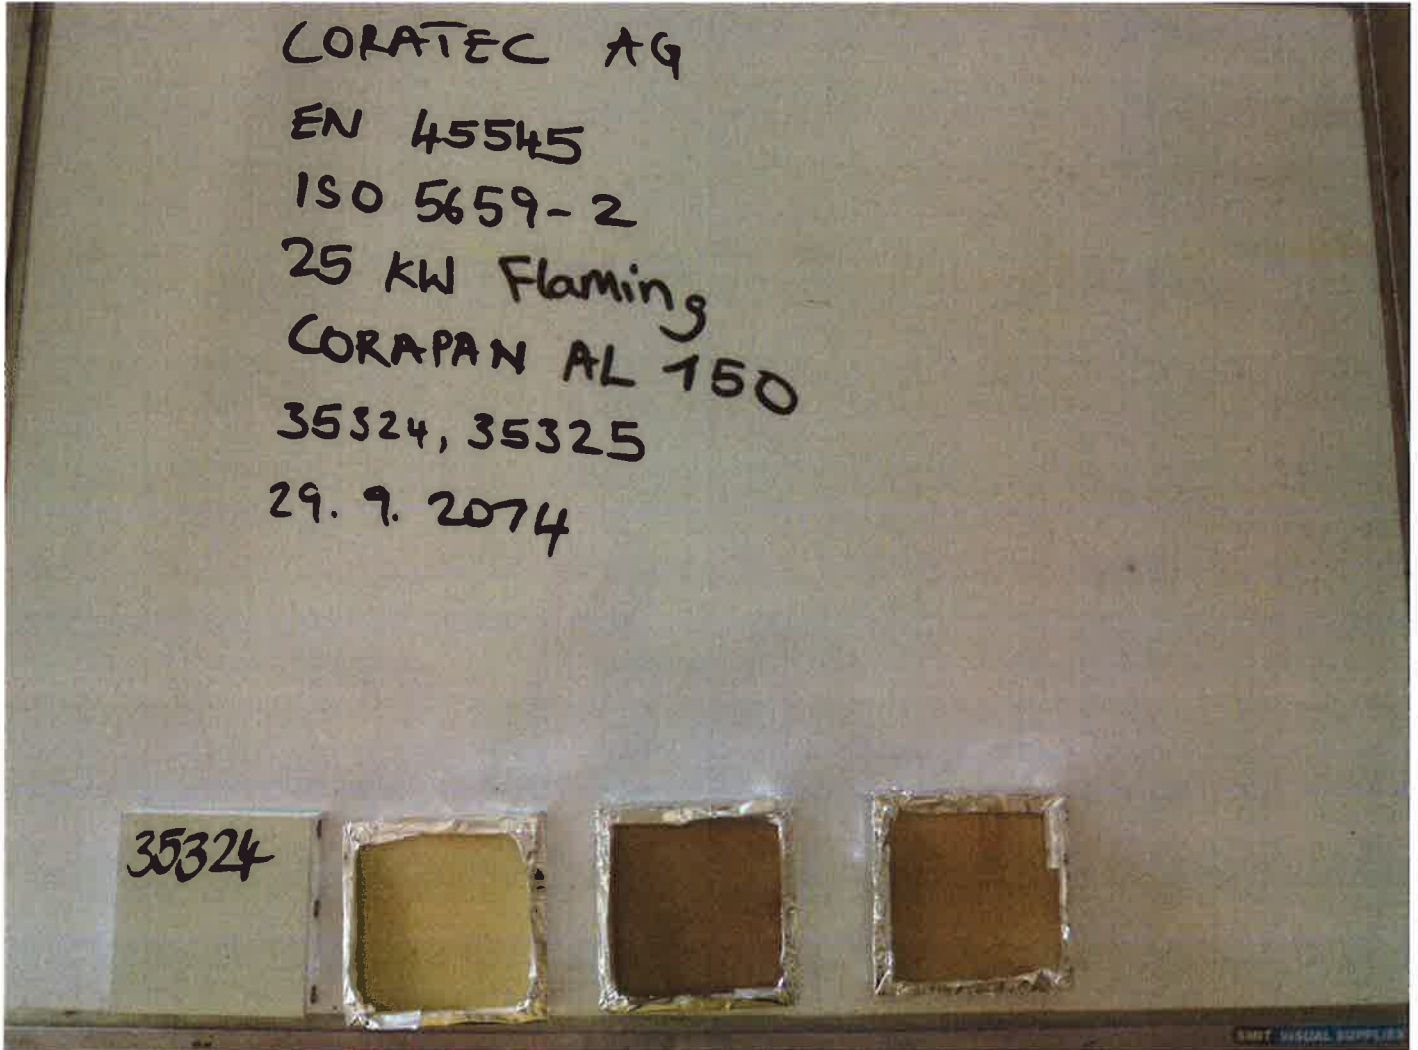 CORATEC AG
EN 45545
ISO 5659-2
25 KW Flaming
CORAPAN AL 150
35324, 35325
29. 9. 2014
35324
SMIT VISUAL SUPPLIES